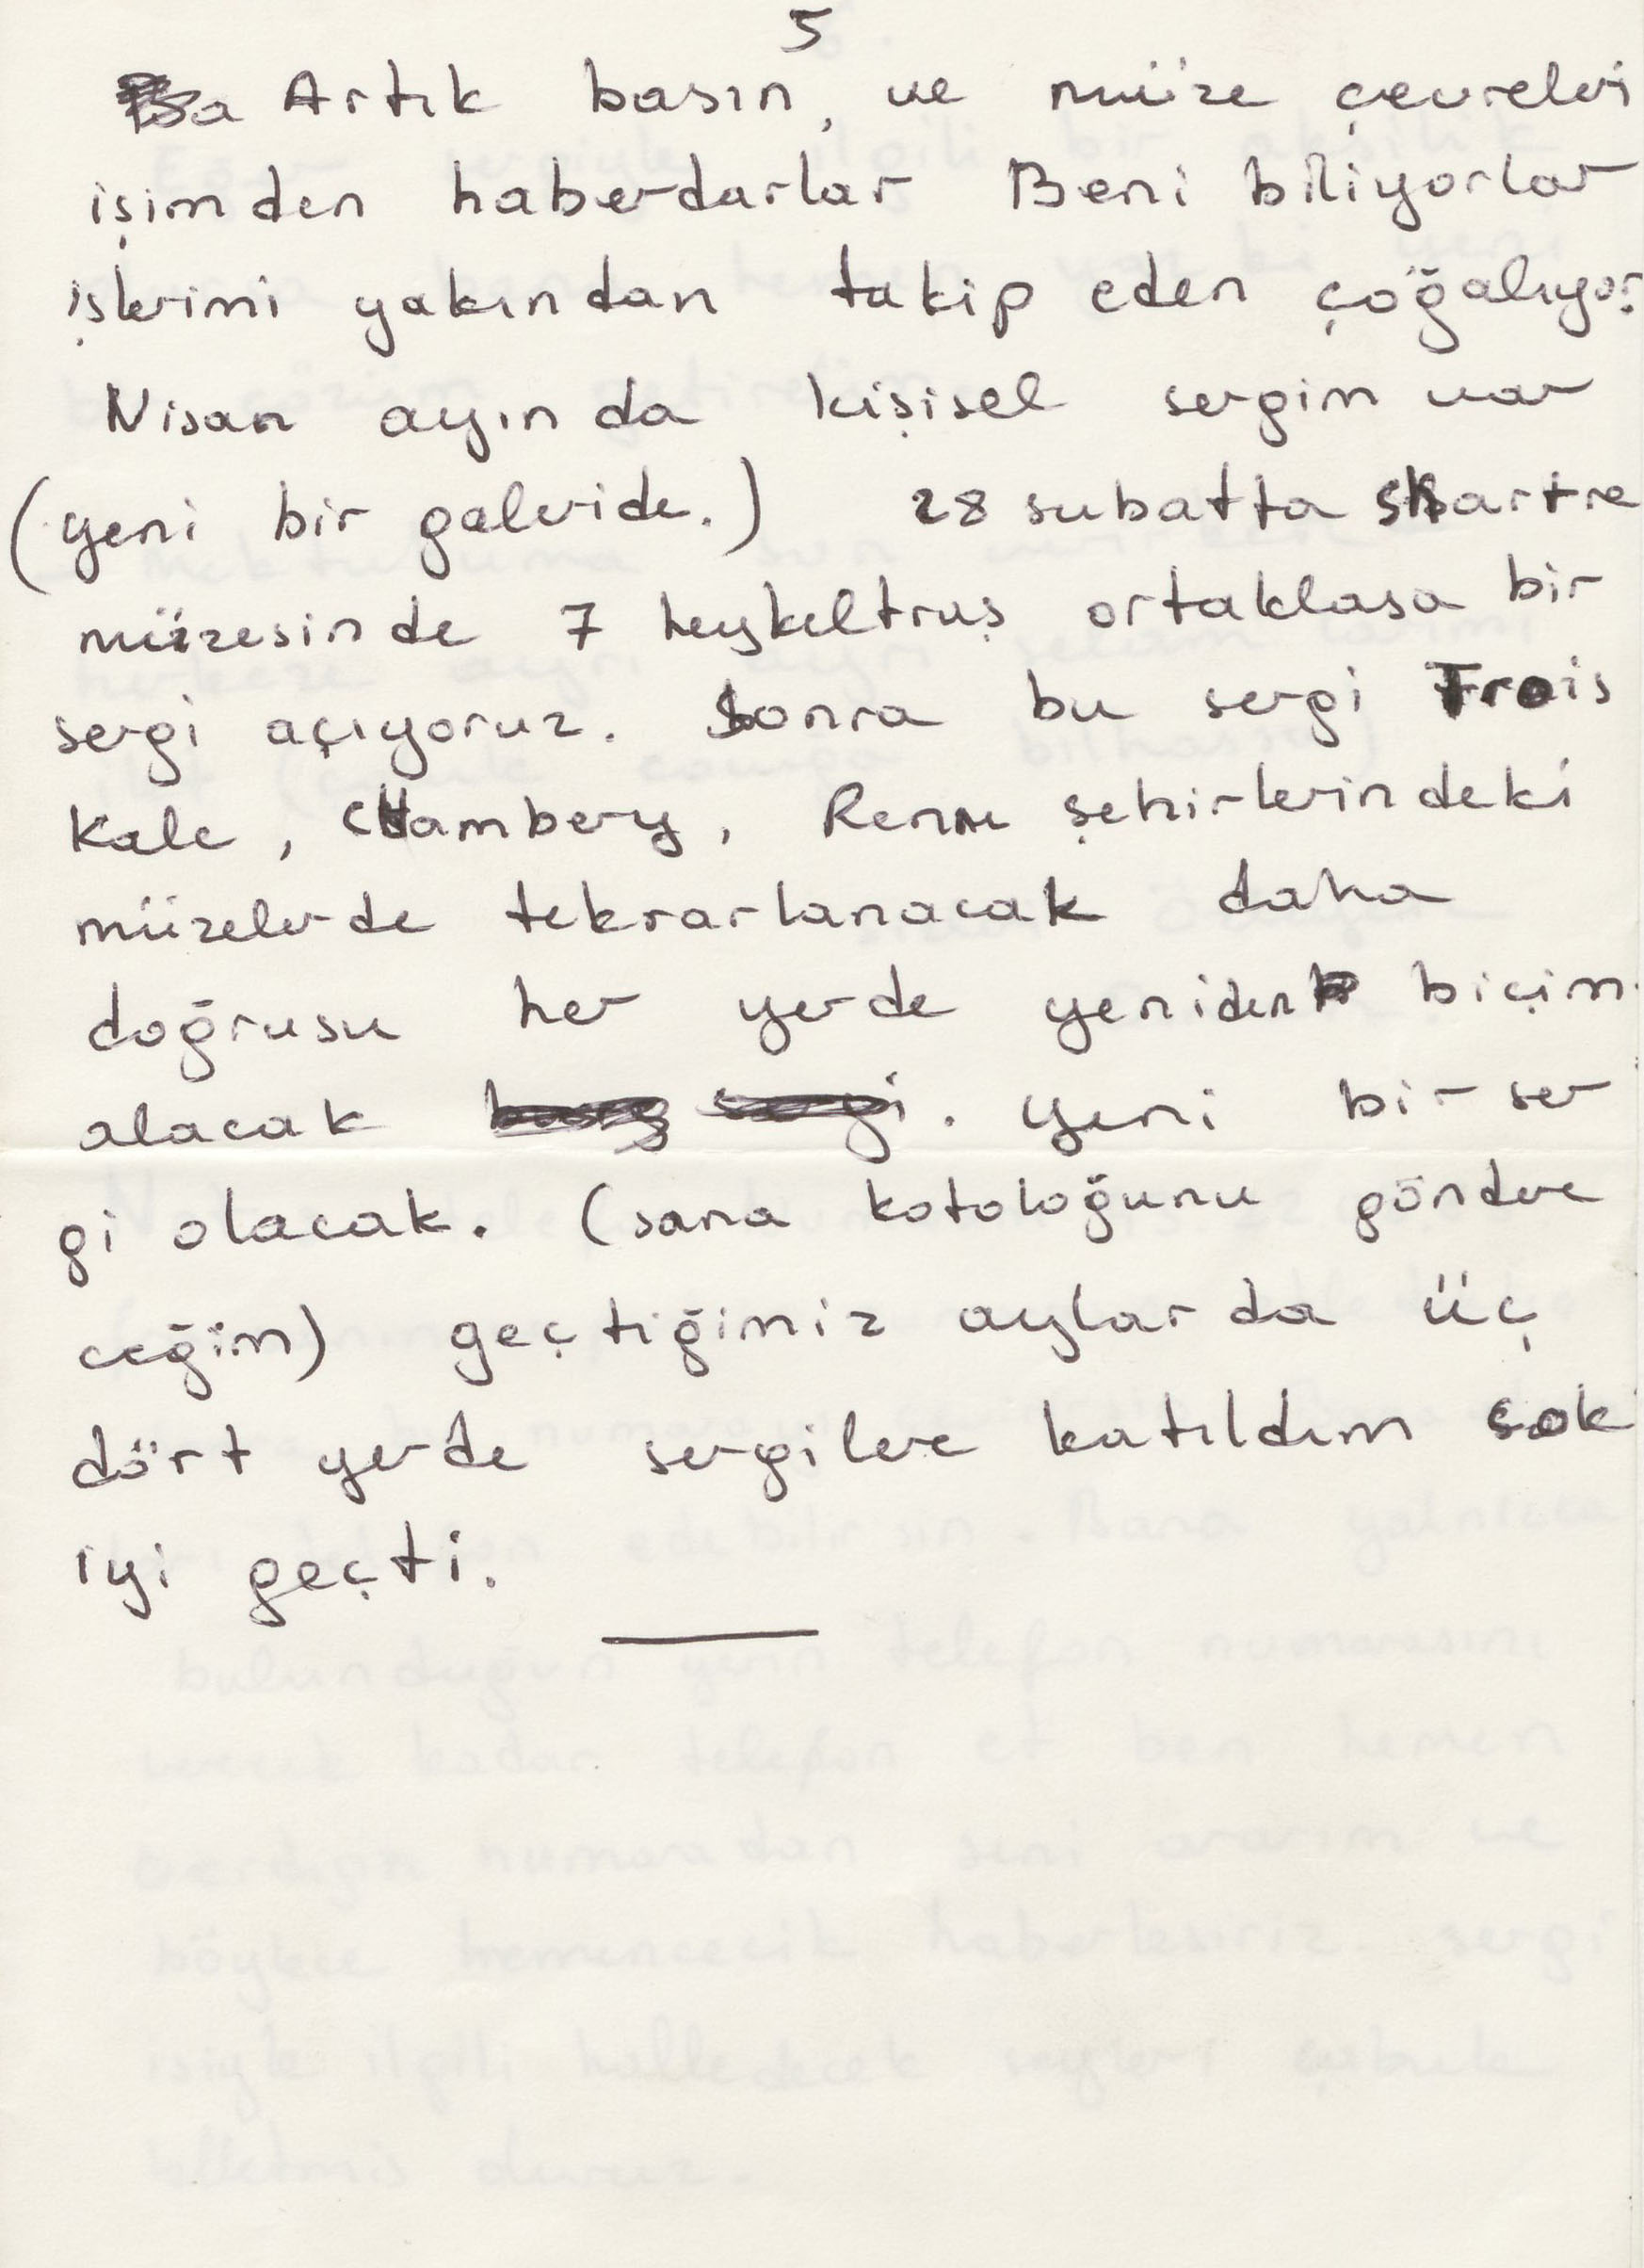 5
Artık basın, ve müze çevreleri
işimden haberdarlar Beni biliyorlar
işlerimi yakından takip eden çoğalıyor.
Nisan ayında kişisel sergim var
(yeni bir galeride.) 28 subatta Shartre
müzesinde 7 heykeltraş ortaklasa bir
sergi açıyoruz. Sonra bu sergi Trois
Kale, CHambery, Renne şehirlerindeki
müzelerde tekrarlanacak daha
doğrusu her yerde yeniden biçim
alacak. yeni bir ser
gi olacak. (sana kotoloğunu göndere
ceğim) geçtiğimiz aylarda üç
dört yerde sergilere katıldım çok
iyi geçti.